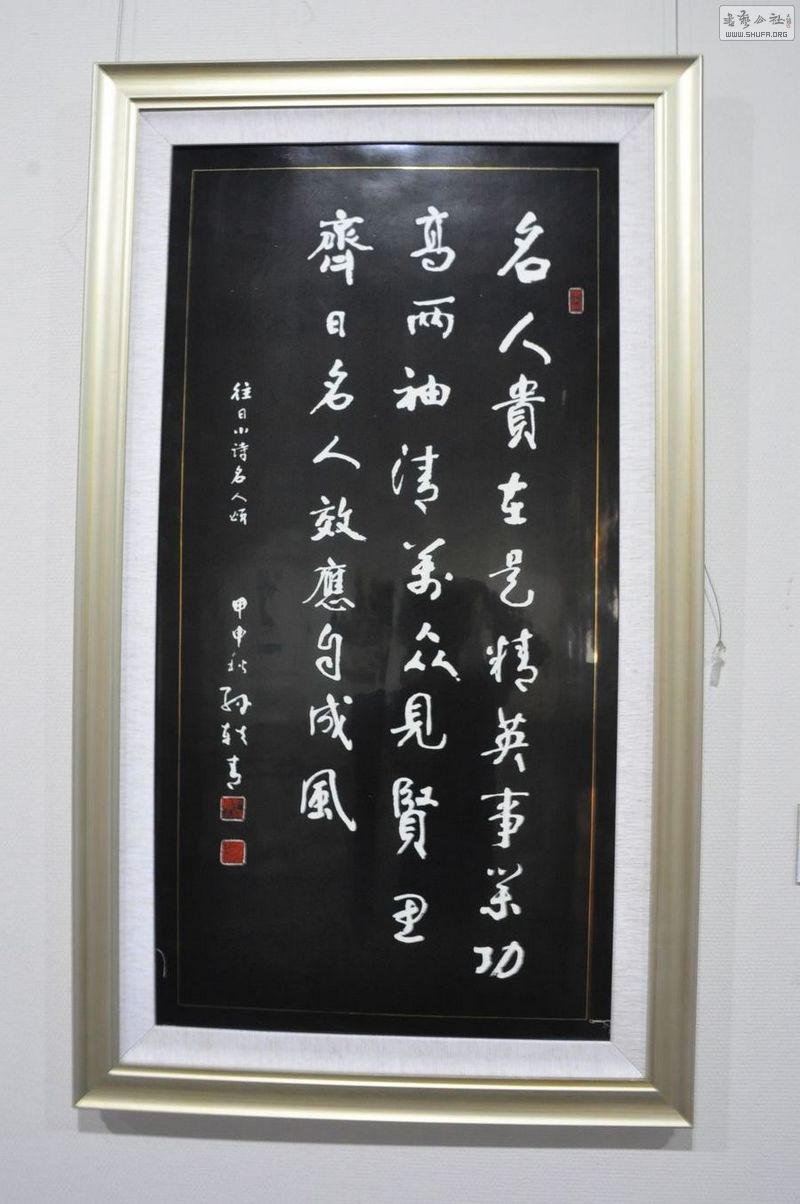 名人貴在是精英事業功
高兩袖清萬众見賢思
齊日名人效應自成風
往日小诗名人頌
甲申秋孙轶青
書藝公社
WWW.SHUFA.ORG